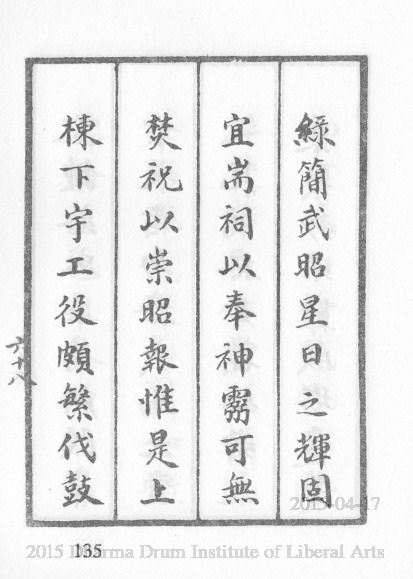 綠簡武昭星日之輝固
宜耑祠以奉神靈可無
焚祝以崇昭報惟是上
棟下宇工役頗繁伐鼓
六十八
135
2015-04-17
2015 Dharma Drum Institute of Liberal Arts